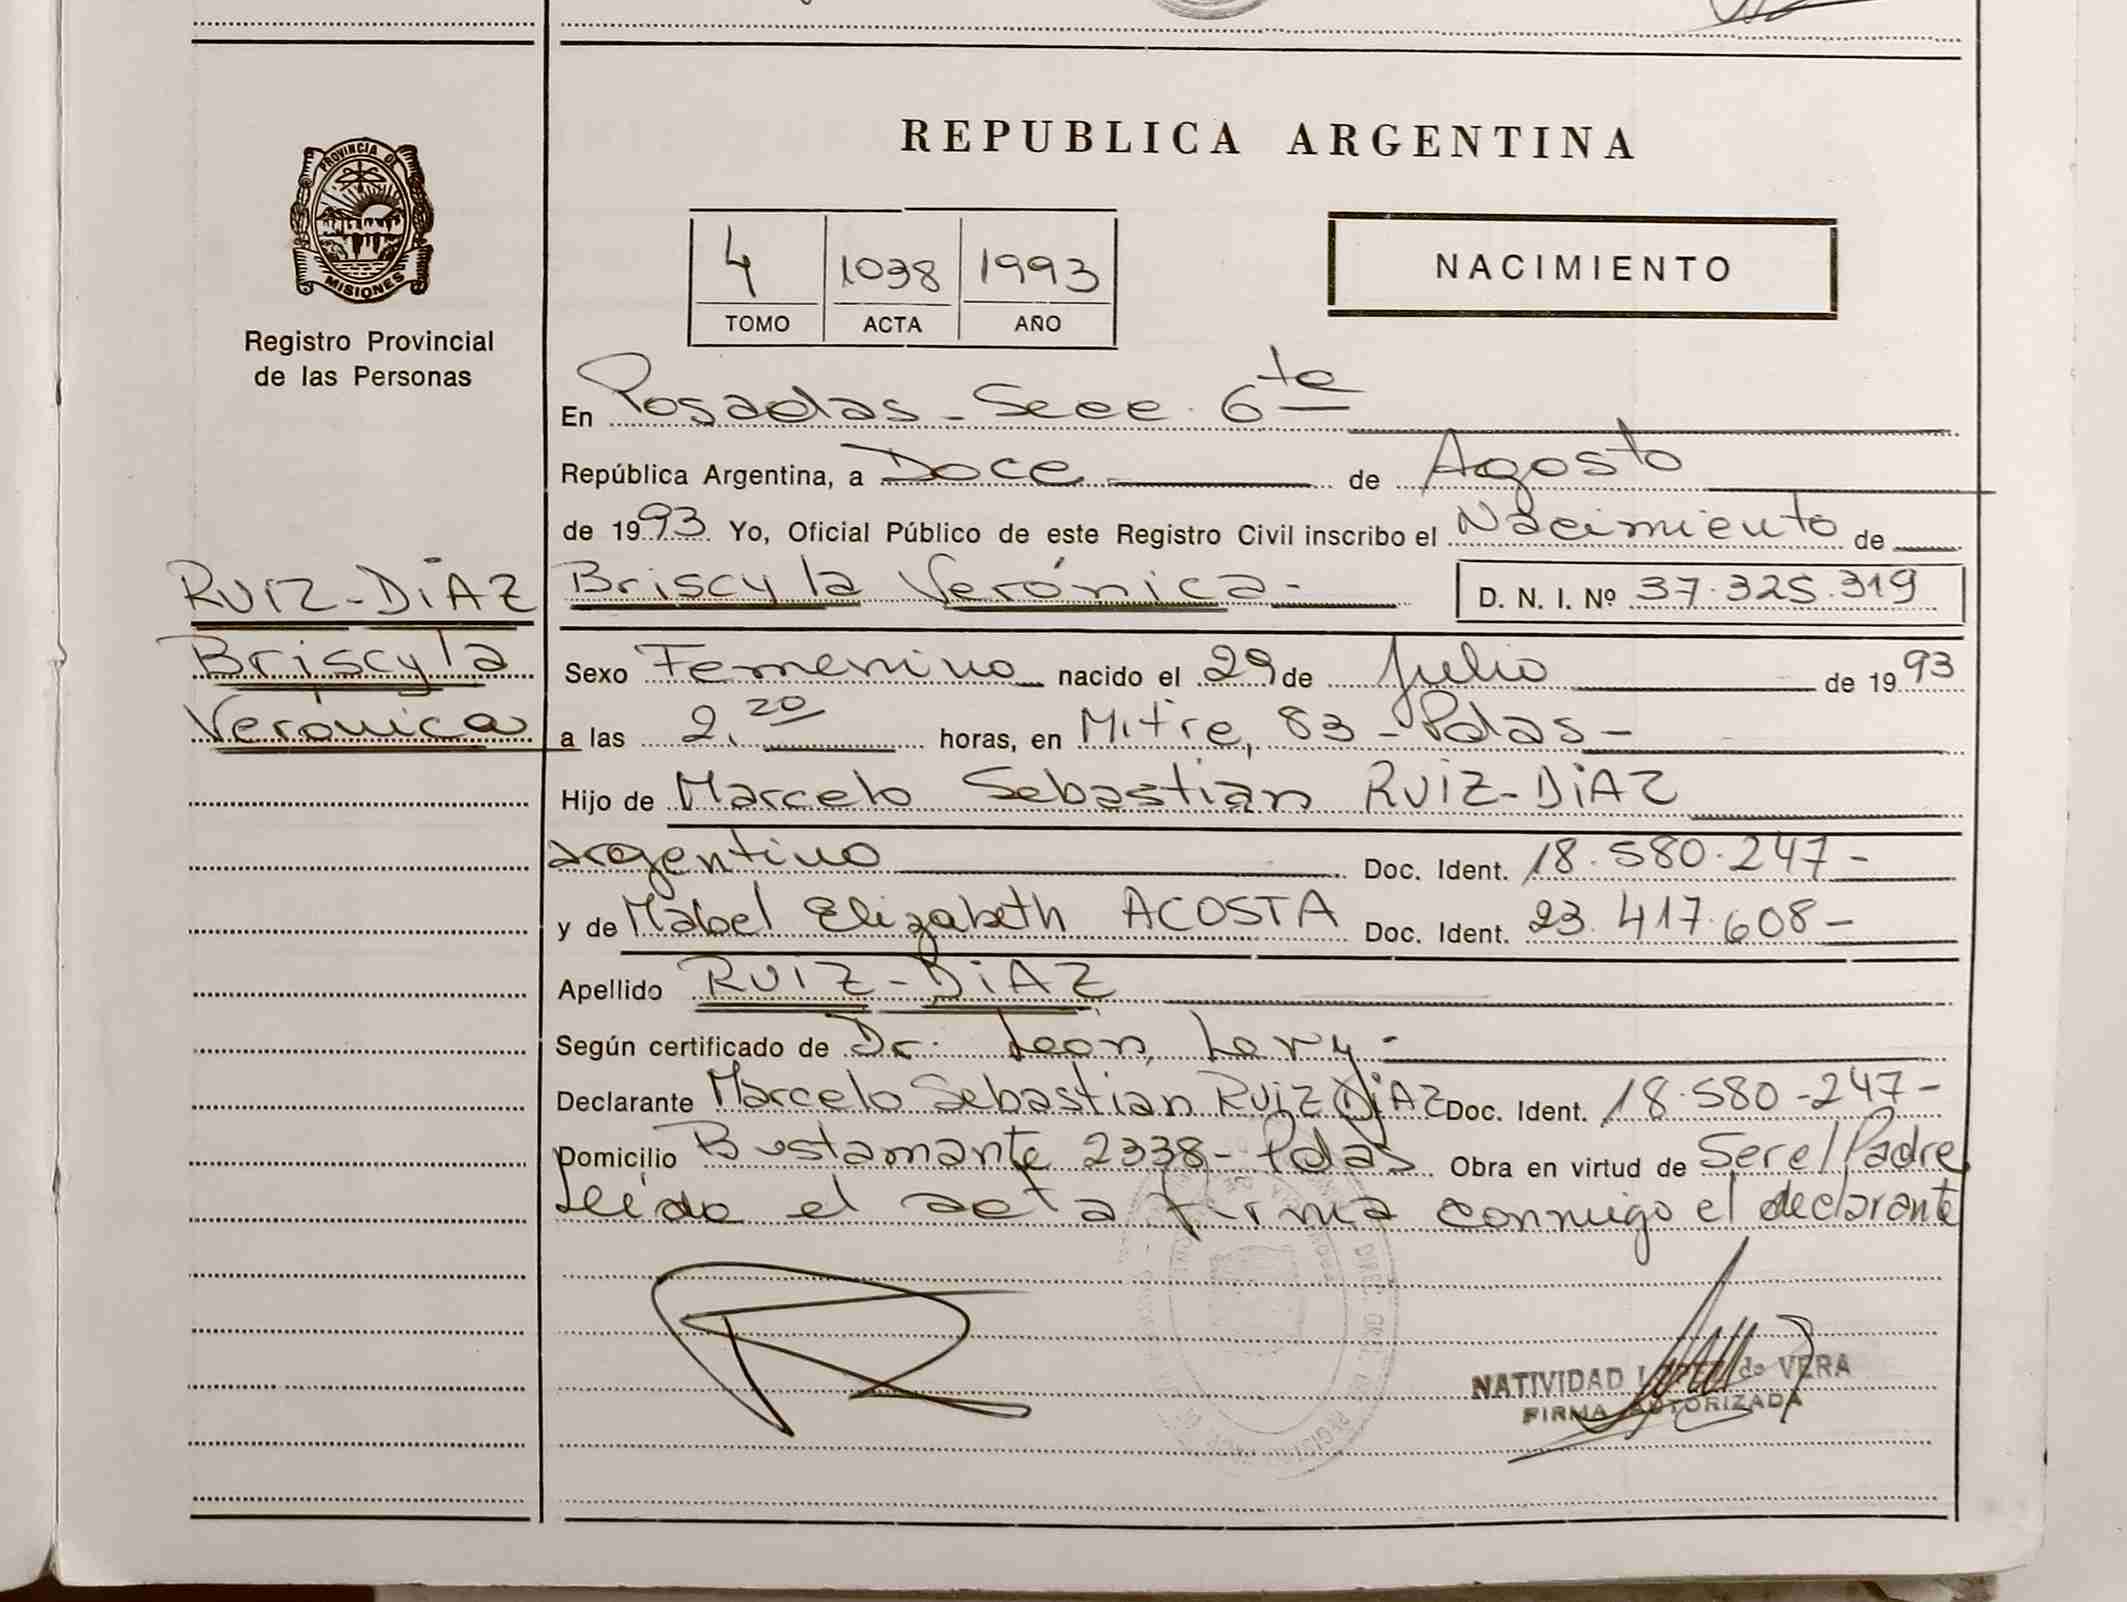 REPUBLICA ARGENTINA
PROVINCIA DE
MISIONES
Registro Provincial
de las Personas
4 1038 1993
TOMO ACTA AÑO
NACIMIENTO
En Posadas - Secc. 6ta
República Argentina, a Doce de Agosto
de 1993 Yo, Oficial Público de este Registro Civil inscribo el Nacimiento de
RUIZ-DIAZ
Briscyla
Verónica
Briscyla Verónica - D. N. I. Nº 37.325.319
Sexo Femenino nacido el 29 de Julio de 1993
a las 2.20 horas, en Mitre, 83 - Pdas -
Hijo de Marcelo Sebastian RUIZ-DIAZ
argentino Doc. Ident. 18.580.247-
y de Mabel Elizabeth ACOSTA Doc. Ident. 23.417.608-
Apellido RUIZ-DIAZ
Según certificado de Dr. León Lery-
Declarante Marcelo Sebastian RUIZ DIAZ Doc. Ident. 18.580-247-
Domicilio Bustamante 2338- Pdas Obra en virtud de Ser el Padre
Leída el acta firma conmigo el declarante
NATIVIDAD LOPEZ de VERA
FIRMA AUTORIZADA